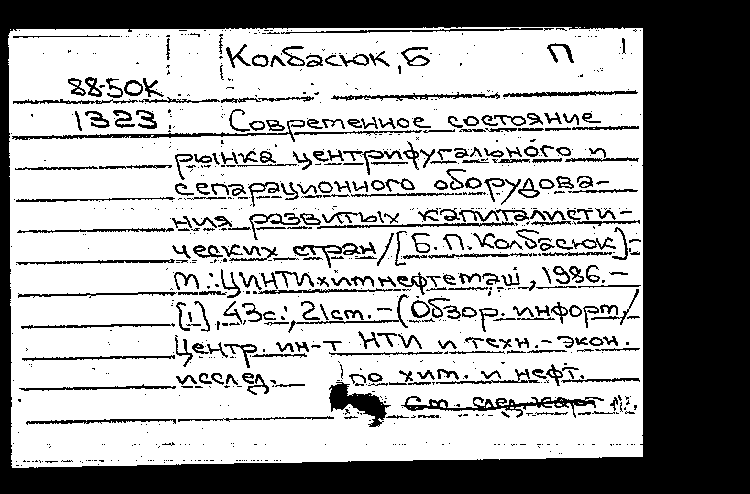 Колбасюк, Б П
88-50К
1323 Современное состояние
рынка центрифугального и
сепарационного оборудова-
ния развитых капиталисти-
ческих стран/[Б.П.Колбасюк].-
М.:ЦИНТИхимнефтемаш, 1986.-
[1], 43с.; 21см.-(Обзор. информ/
Центр. ин-т НТИ и техн.-экон.
исслед. по хим. и нефт.
См. след. карт